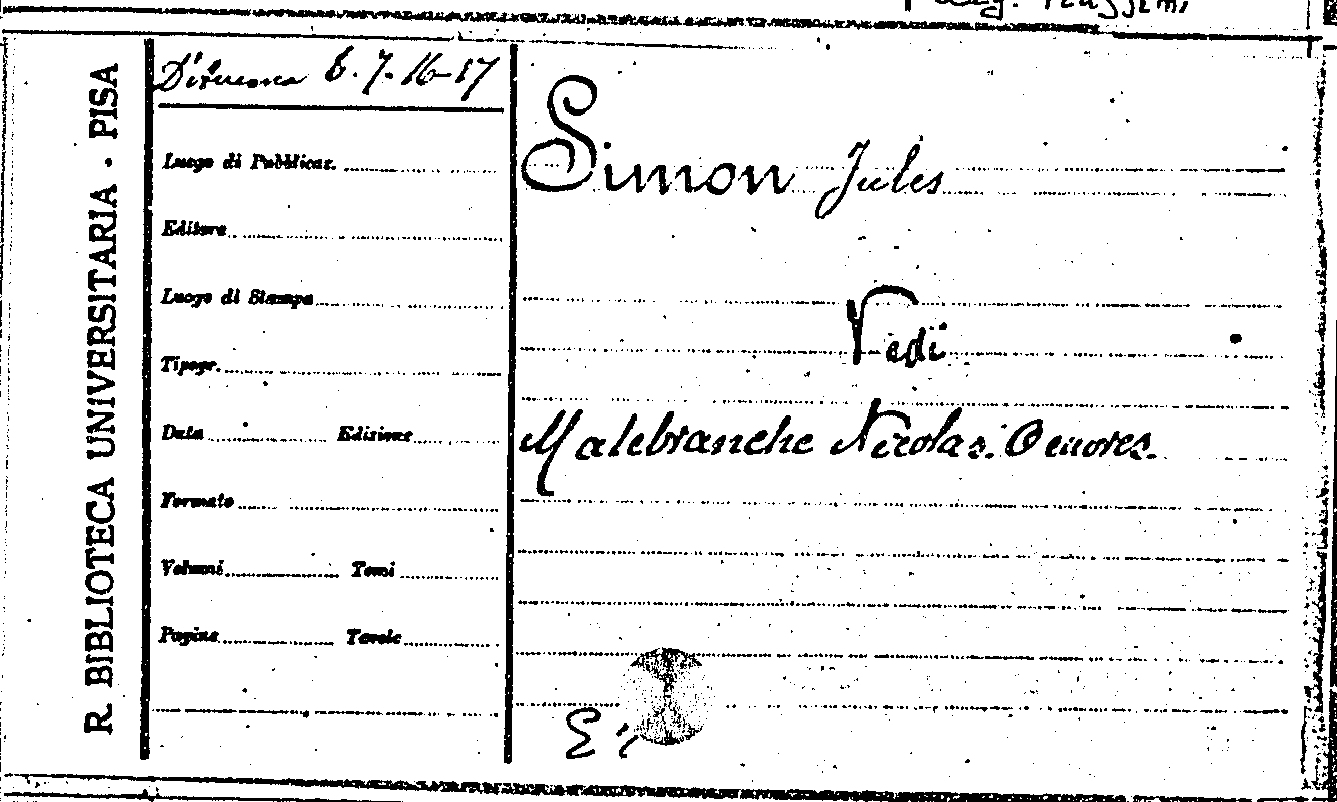 R. BIBLIOTECA UNIVERSITARIA - PISA
6. 7. 16-17
Luogo di Pubblicaz.
Editore
Luogo di Stampa
Tipogr.
Data Edizione
Formato
Volumi Tomi
Pagine Tavole
Simon Jules
Vedi
Malebranche Nicolas. Oeuvres.